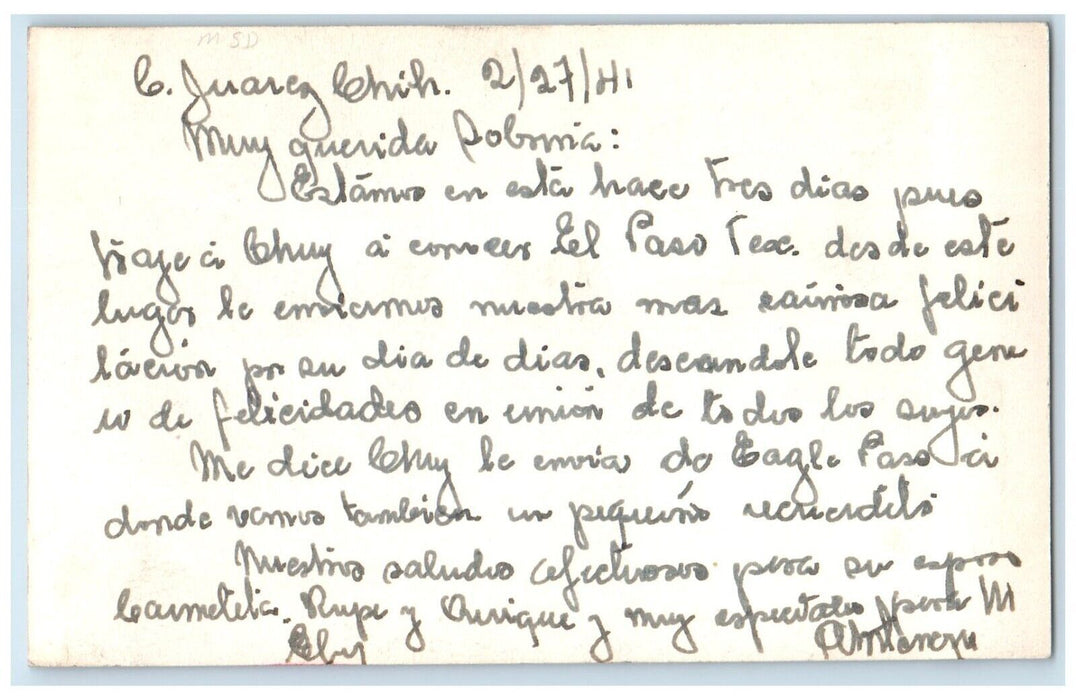 MSD
C. Juarez Chih. 2/27/41
Muy querida Sobrina:
Estámos en está hace tres dias pues
traje á Chuy á conocer El Paso Tex. desde este
lugar le enviamos nuestra mas cariñosa felici
tácion por su dia de dias, deseandole todo gene
ro de felicidades en unión de todos los suyos.
Me dice Chuy le envia de Eagle Paso á
donde vamos tambien un pequeño recuerdito
Nuestros saludos afectuosos para su esposo
Carmelita, Rupe y Quique y muy especiales para Ud